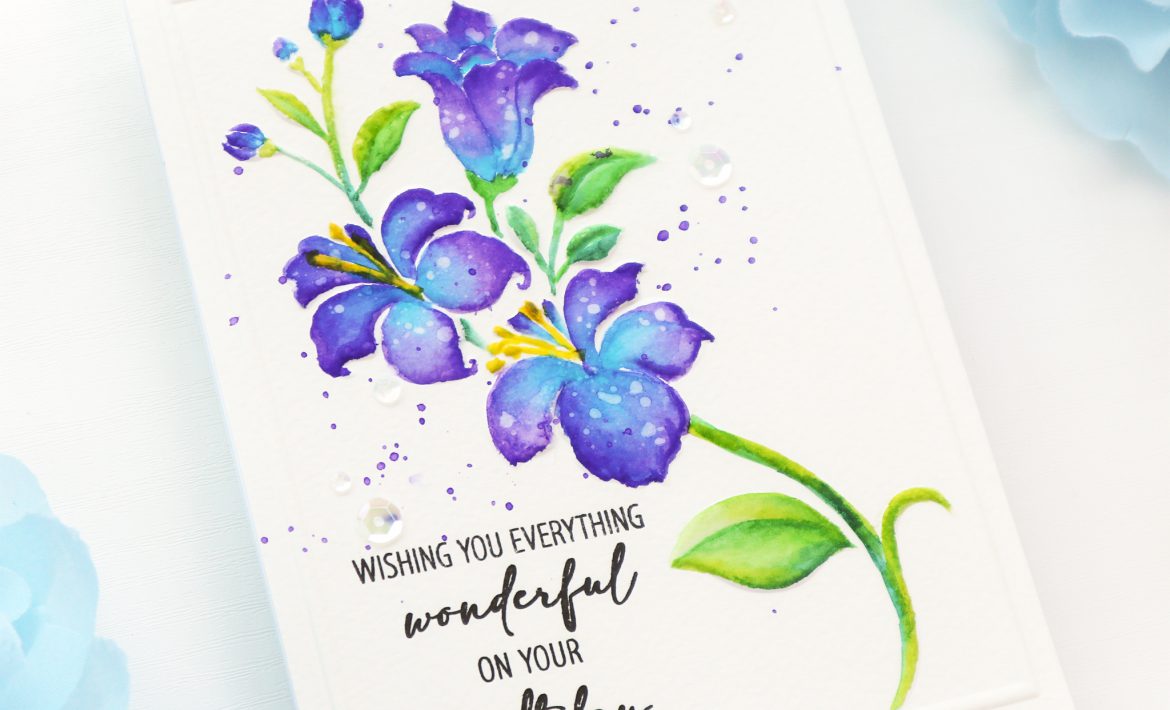 WISHING YOU EVERYTHING
wonderful
ON YOUR